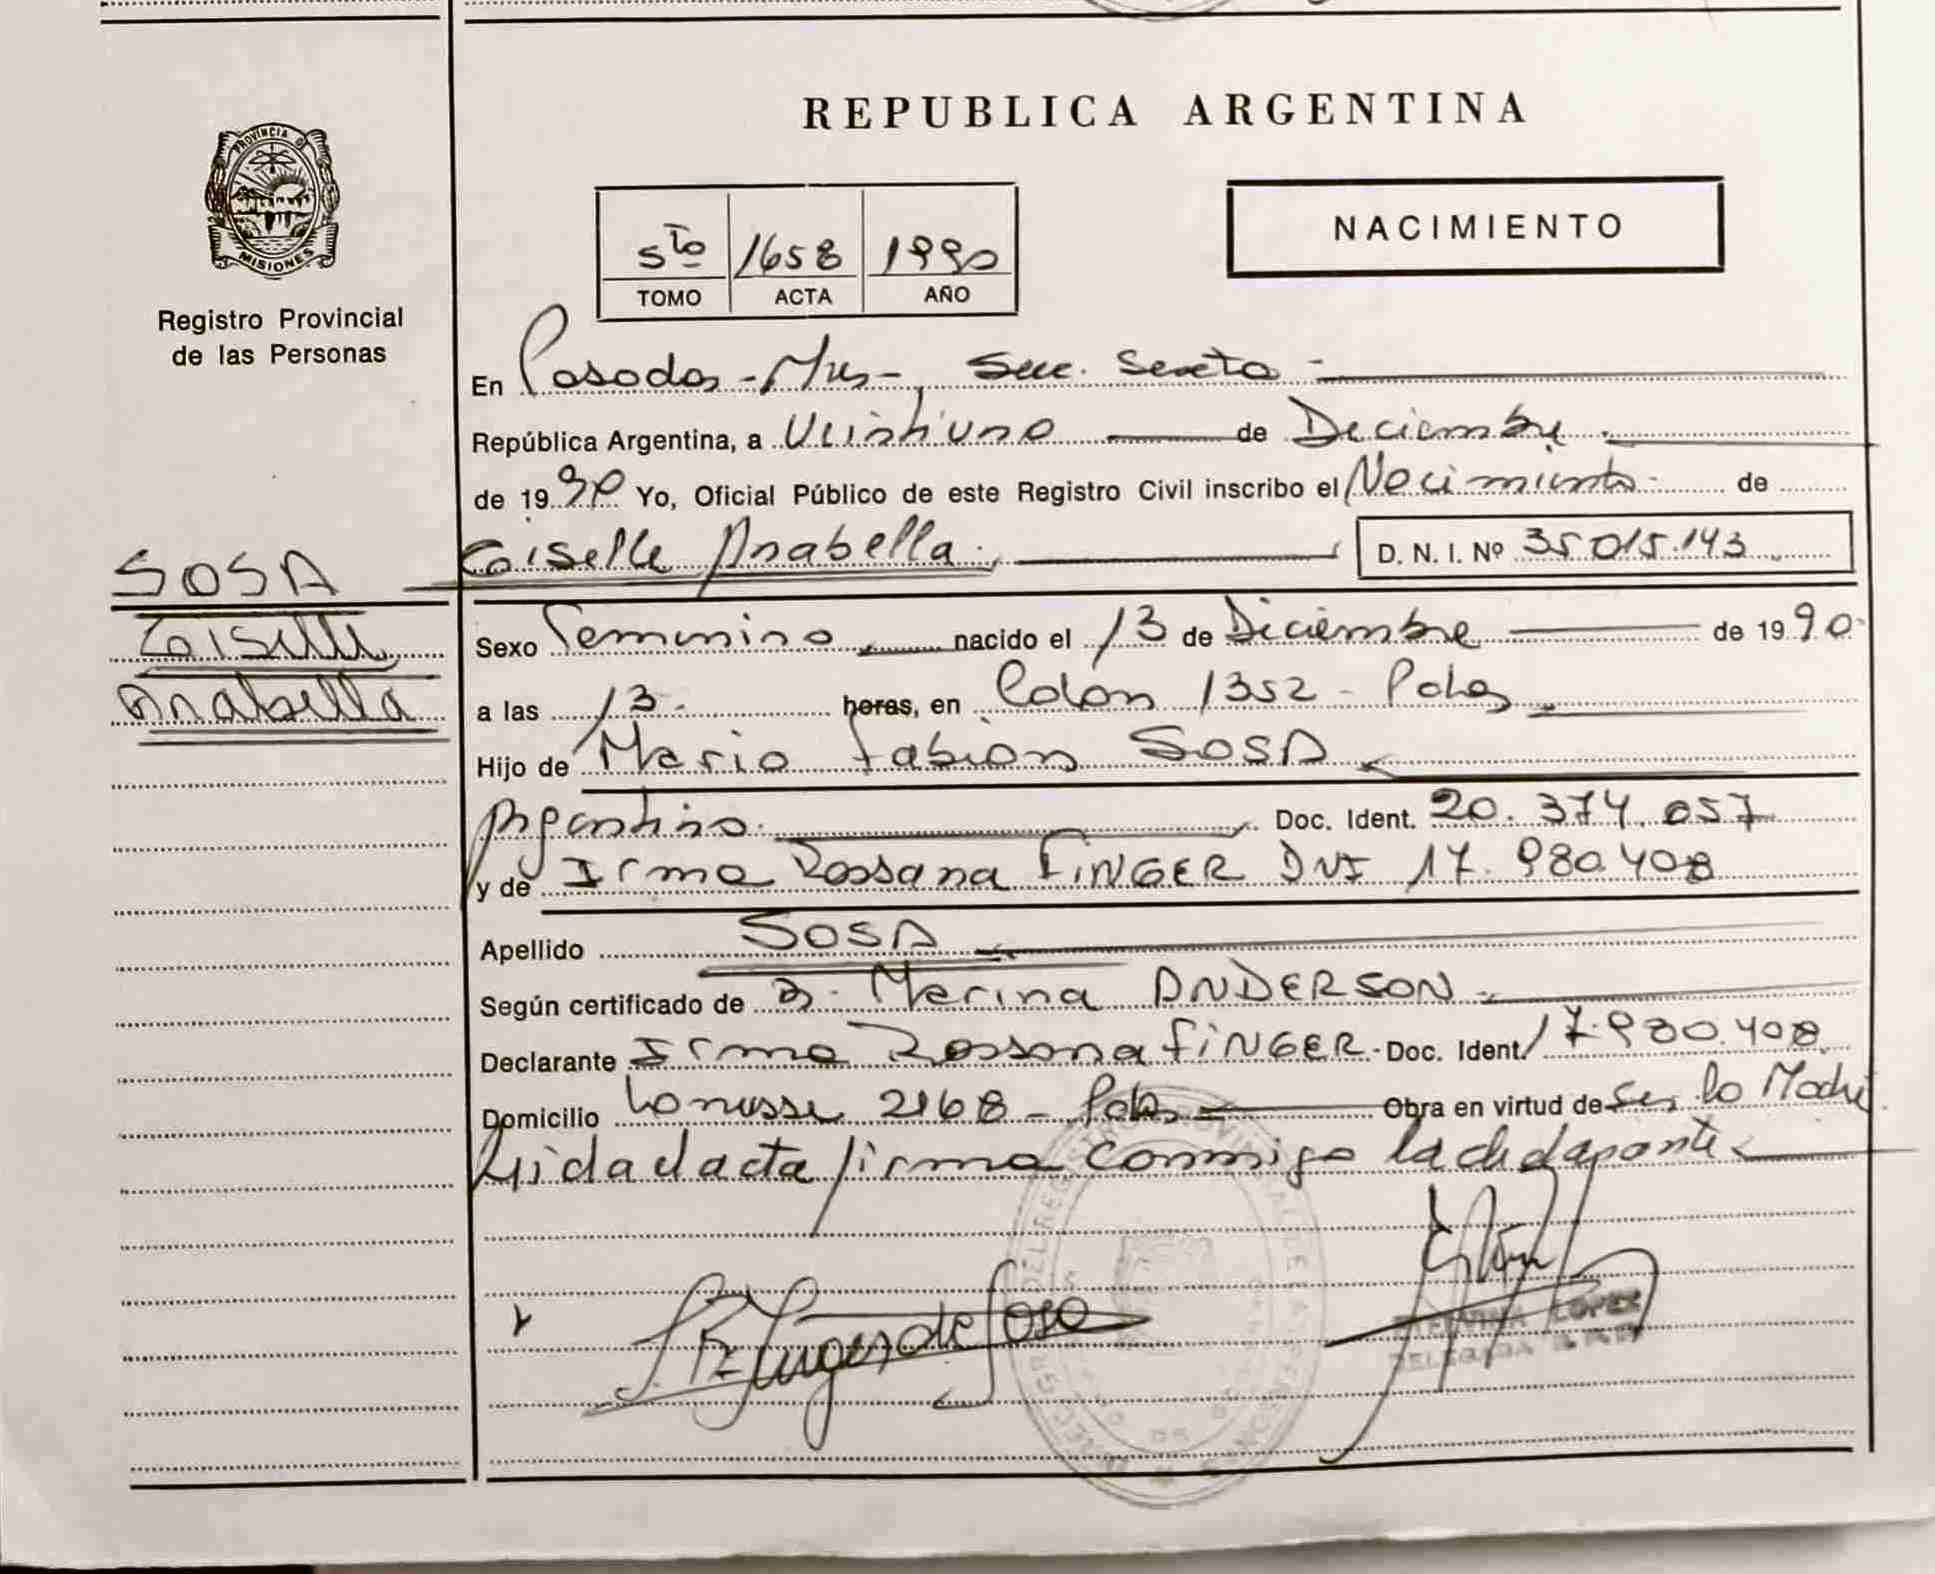 REPUBLICA ARGENTINA
PROVINCIA DE
MISIONES
Registro Provincial
de las Personas
NACIMIENTO
5to 1658 1990
TOMO ACTA AÑO
En Posadas - Mnes -, Secc. Sexta -
República Argentina, a Veintiuno de Diciembre
de 1990 Yo, Oficial Público de este Registro Civil inscribo el Nacimiento de
Giselle Anabella D. N. I. Nº 35.015.143
SOSA
Giselle
Anabella
Sexo Femenino nacido el 13 de Diciembre de 1990
a las 13 horas, en Colon 1352 - Pdas
Hijo de Mario Fabian SOSA
Argentino. Doc. Ident. 20.374.057
y de Irma Rossana FINGER DNI 17.980.408
Apellido SOSA
Según certificado de Marina ANDERSON
Declarante Irma Rossana FINGER - Doc. Ident. 17.980.408
Domicilio Lanusse 2168 - Pdas Obra en virtud de Ser la Madre
Leida el acta firma conmigo la declarante
I R Finger de Sosa
LOPEZ
DELEGADA